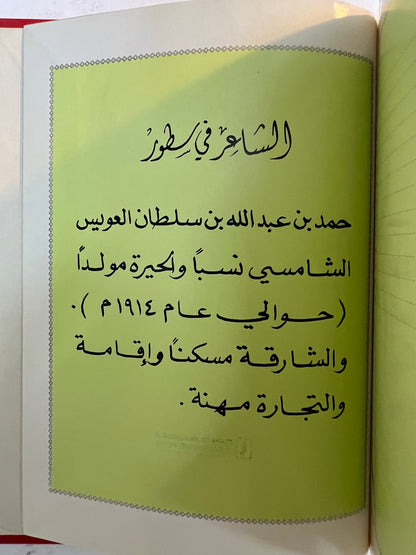 الشاعر في سطور
حمد بن عبد الله بن سلطان العويس
الشامسي نسباً والحيرة مولداً
( حوالي عام ١٩١٤ م ) .
والشارقة مسكناً وإقامة
والتجارة مهنة .